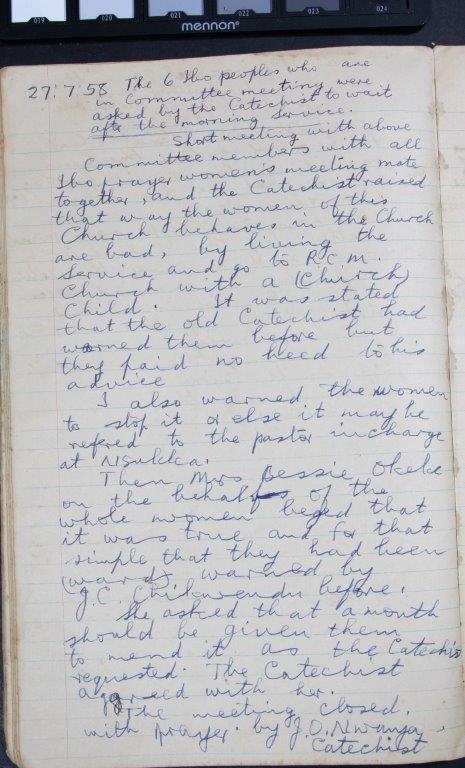 019 020 021 022 023 024
mennon
27:7:58 The 6 Ibo peoples who are
in Committee meeting were
asked by the Catechist to wait
after the morning service.
Short meeting with above
Committee members with all
Ibo prayer women's meeting mate
together, and the Catechist raised
that way the women of this
Church behaves in the Church
are bad, by living the
Service and go to R.C.M.
Church with a (Church)
Child. It was stated
that the old Catechist had
warned them before but
they paid no heed to his
advice
I also warned the women
to stop it or else it may be
refered to the pastor incharge
at Nsukka.
Then Mrs Bessie Okeke
on the behalf of the
whole women beged that
it was true and for that
simple that they had been
(ward), warned by
J.C. Chikwendu before.
She asked that a month
should be given them
to mend it as the Catechis
requested. The Catechist
agreed with her.
The meeting closed.
with prayer. by J.O. Nwanya,
Catechist